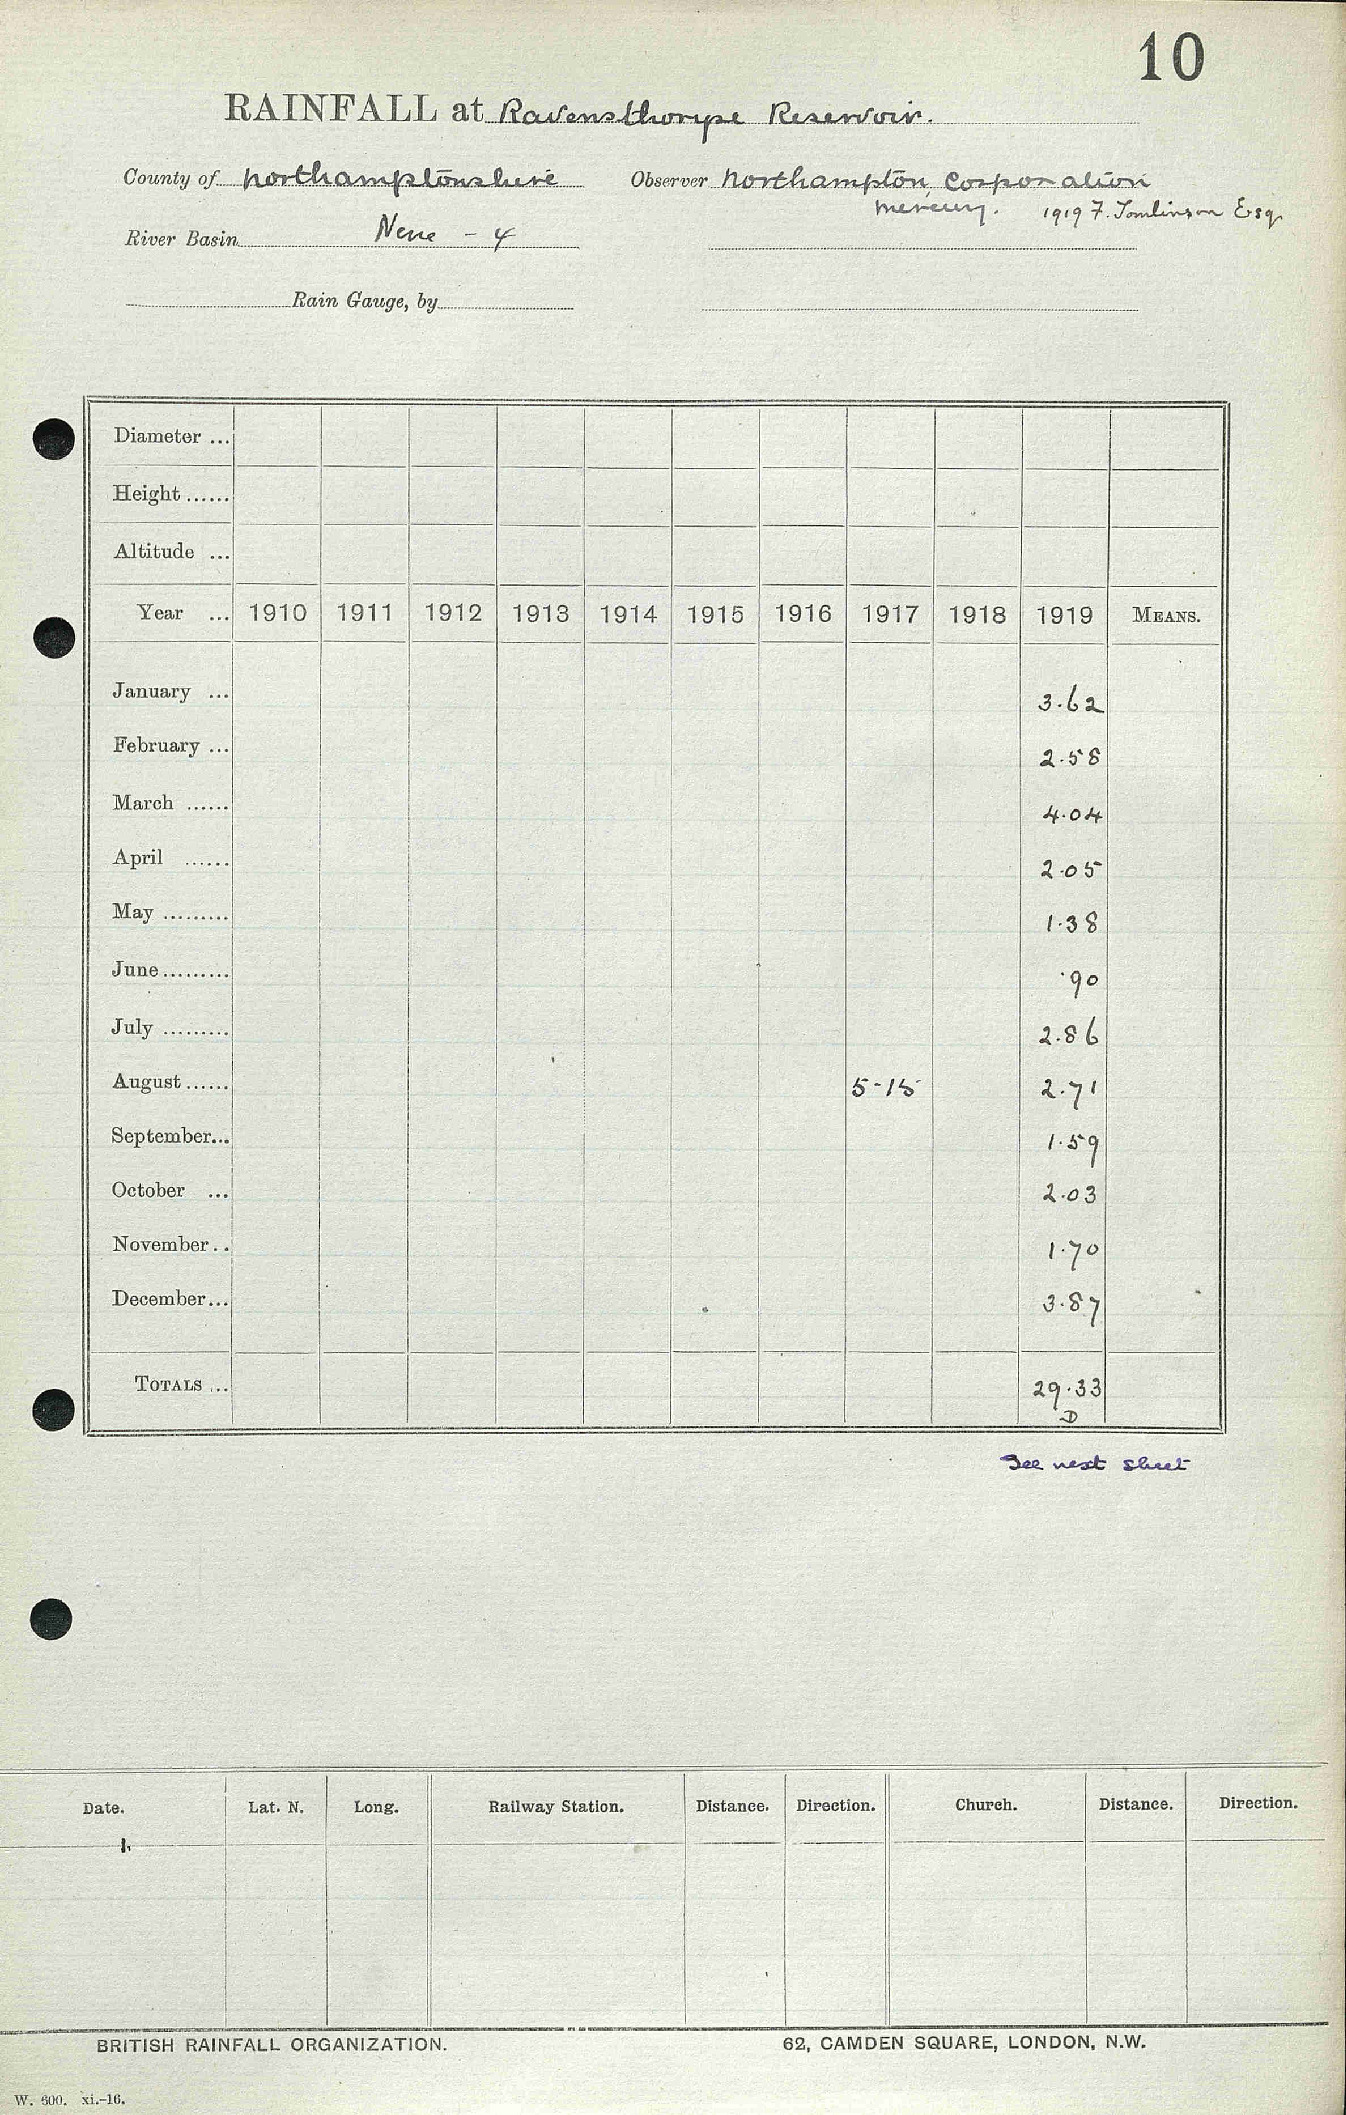 10
RAINFALL at Ravensthorpe Reservoir.
County of Northamptonshire Observer Northampton Corporation
Mercury. 1919 F. Tomlinson Esq
River Basin Nene - 4
Rain Gauge, by
Diameter ...
Height ......
Altitude ...
Year ... 1910 1911 1912 1913 1914 1915 1916 1917 1918 1919 MEANS.
January ... 3.62
February ... 2.58
March ...... 4.04
April ...... 2.05
May ......... 1.38
June ......... .90
July ......... 2.86
August ...... 5-15 2.71
September... 1.59
October ... 2.03
November.. 1.70
December... 3.87
TOTALS ... 29.33
D
See next sheet
Date. Lat. N. Long. Railway Station. Distance. Direction. Church. Distance. Direction.
BRITISH RAINFALL ORGANIZATION. 62, CAMDEN SQUARE, LONDON, N.W.
W. 600. xi.-16.